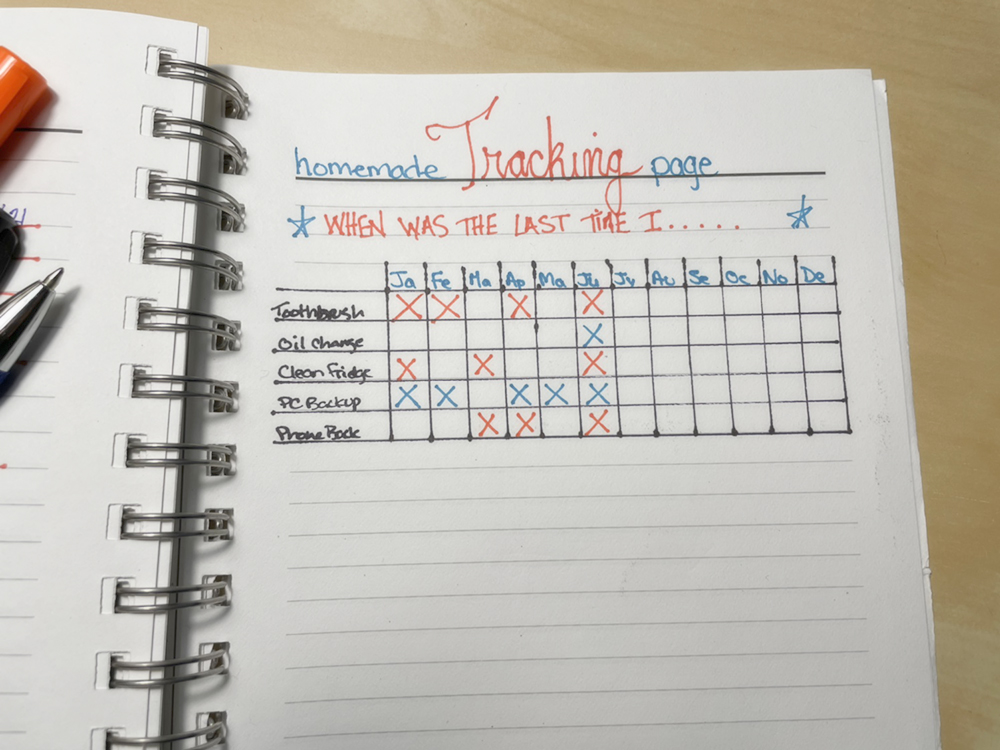 homemade Tracking page
WHEN WAS THE LAST TIME I.....
Ja Fe Ma Ap Ma Ju Jy Au Se Oc No De
Toothbrush X X X X
Oil Change X
Clean Fridge X X X
PC Backup X X X X X
Phone Back X X X